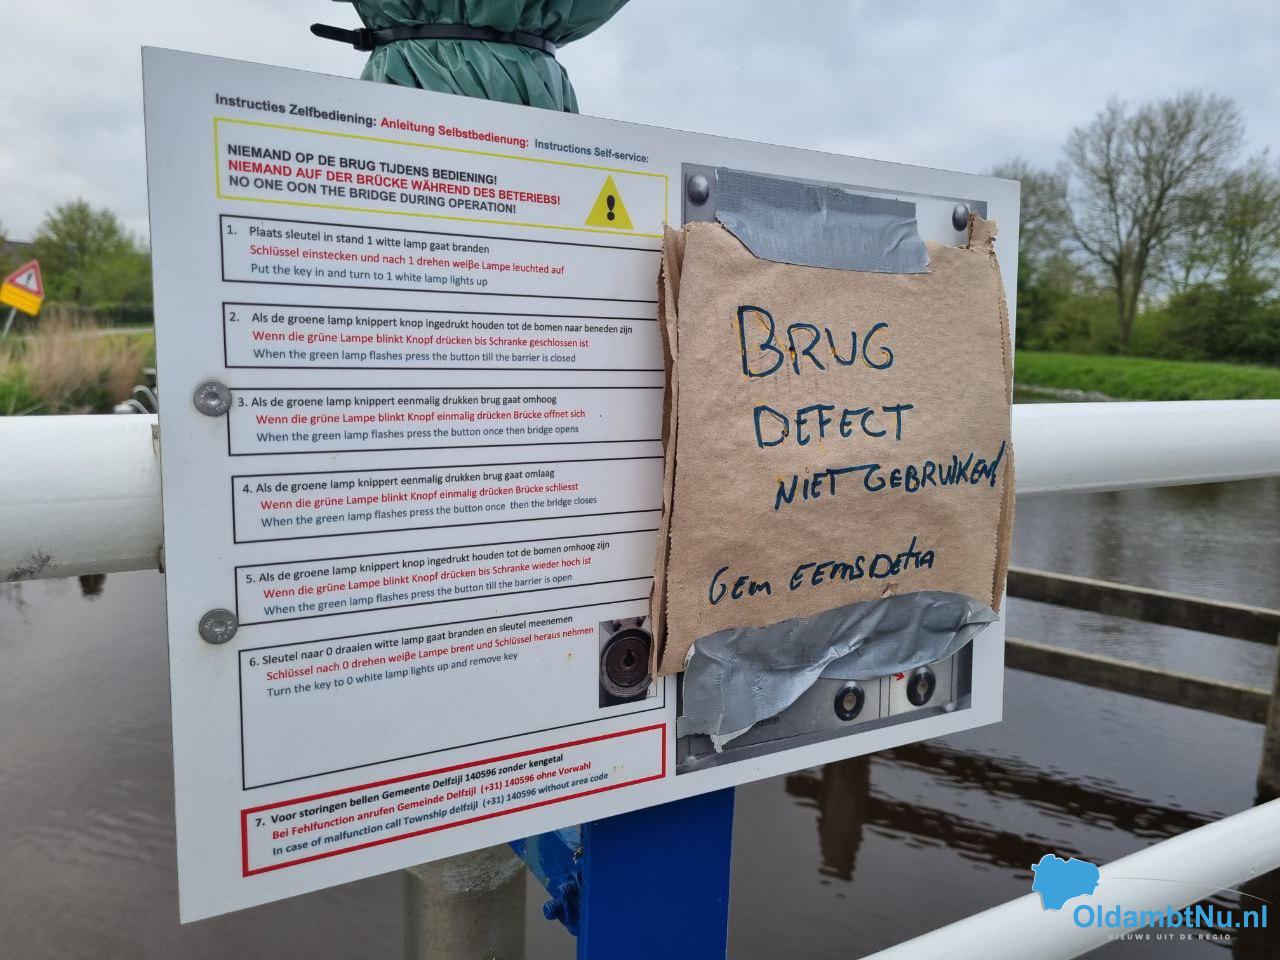 Instructies Zelfbediening: Anleitung Selbstbedienung: Instructions Self-service:
NIEMAND OP DE BRUG TIJDENS BEDIENING!
NIEMAND AUF DER BRÜCKE WÄHREND DES BETERIEBS!
NO ONE OON THE BRIDGE DURING OPERATION!
1. Plaats sleutel in stand 1 witte lamp gaat branden
Schlüssel einstecken und nach 1 drehen weiße Lampe leuchted auf
Put the key in and turn to 1 white lamp lights up
2. Als de groene lamp knippert knop ingedrukt houden tot de bomen naar beneden zijn
Wenn die grüne Lampe blinkt Knopf drücken bis Schranke geschlossen ist
When the green lamp flashes press the button till the barrier is closed
3. Als de groene lamp knippert eenmalig drukken brug gaat omhoog
Wenn die grüne Lampe blinkt Knopf einmalig drücken Brücke offnet sich
When the green lamp flashes press the button once then bridge opens
4. Als de groene lamp knippert eenmalig drukken brug gaat omlaag
Wenn die grüne Lampe blinkt Knopf einmalig drücken Brücke schliesst
When the green lamp flashes press the button once then the bridge closes
5. Als de groene lamp knippert knop ingedrukt houden tot de bomen omhoog zijn
Wenn die grüne Lampe blinkt Knopf drücken bis Schranke wieder hoch ist
When the green lamp flashes press the button till the barrier is open
6. Sleutel naar 0 draaien witte lamp gaat branden en sleutel meenemen
Schlüssel nach 0 drehen weiße Lampe brent und Schlüssel heraus nehmen
Turn the key to 0 white lamp lights up and remove key
7. Voor storingen bellen Gemeente Delfzijl 140596 zonder kengetal
Bei Fehlfunction anrufen Gemeinde Delfzijl (+31) 140596 ohne Vorwahl
In case of malfunction call Township delfzijl (+31) 140596 without area code
BRUG
DEFECT
NIET GEBRUIKEN!
Gem EEMSDELTA
OldambtNu.nl
NIEUWS UIT DE REGIO